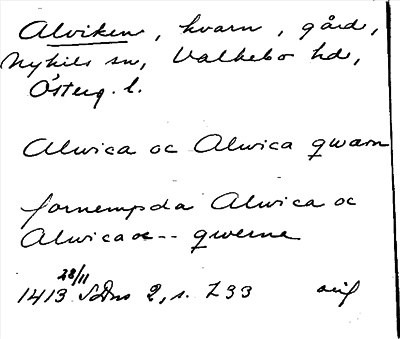 Alviken, kvarn, gård,
Nykils sn, Valkebo hd,
Österg. l.
Alwica oc Alwica qwarn
fornempda Alwica oc
Alwica oc -- qwerne
28/11
1413 SDns 2, s. 733 orig